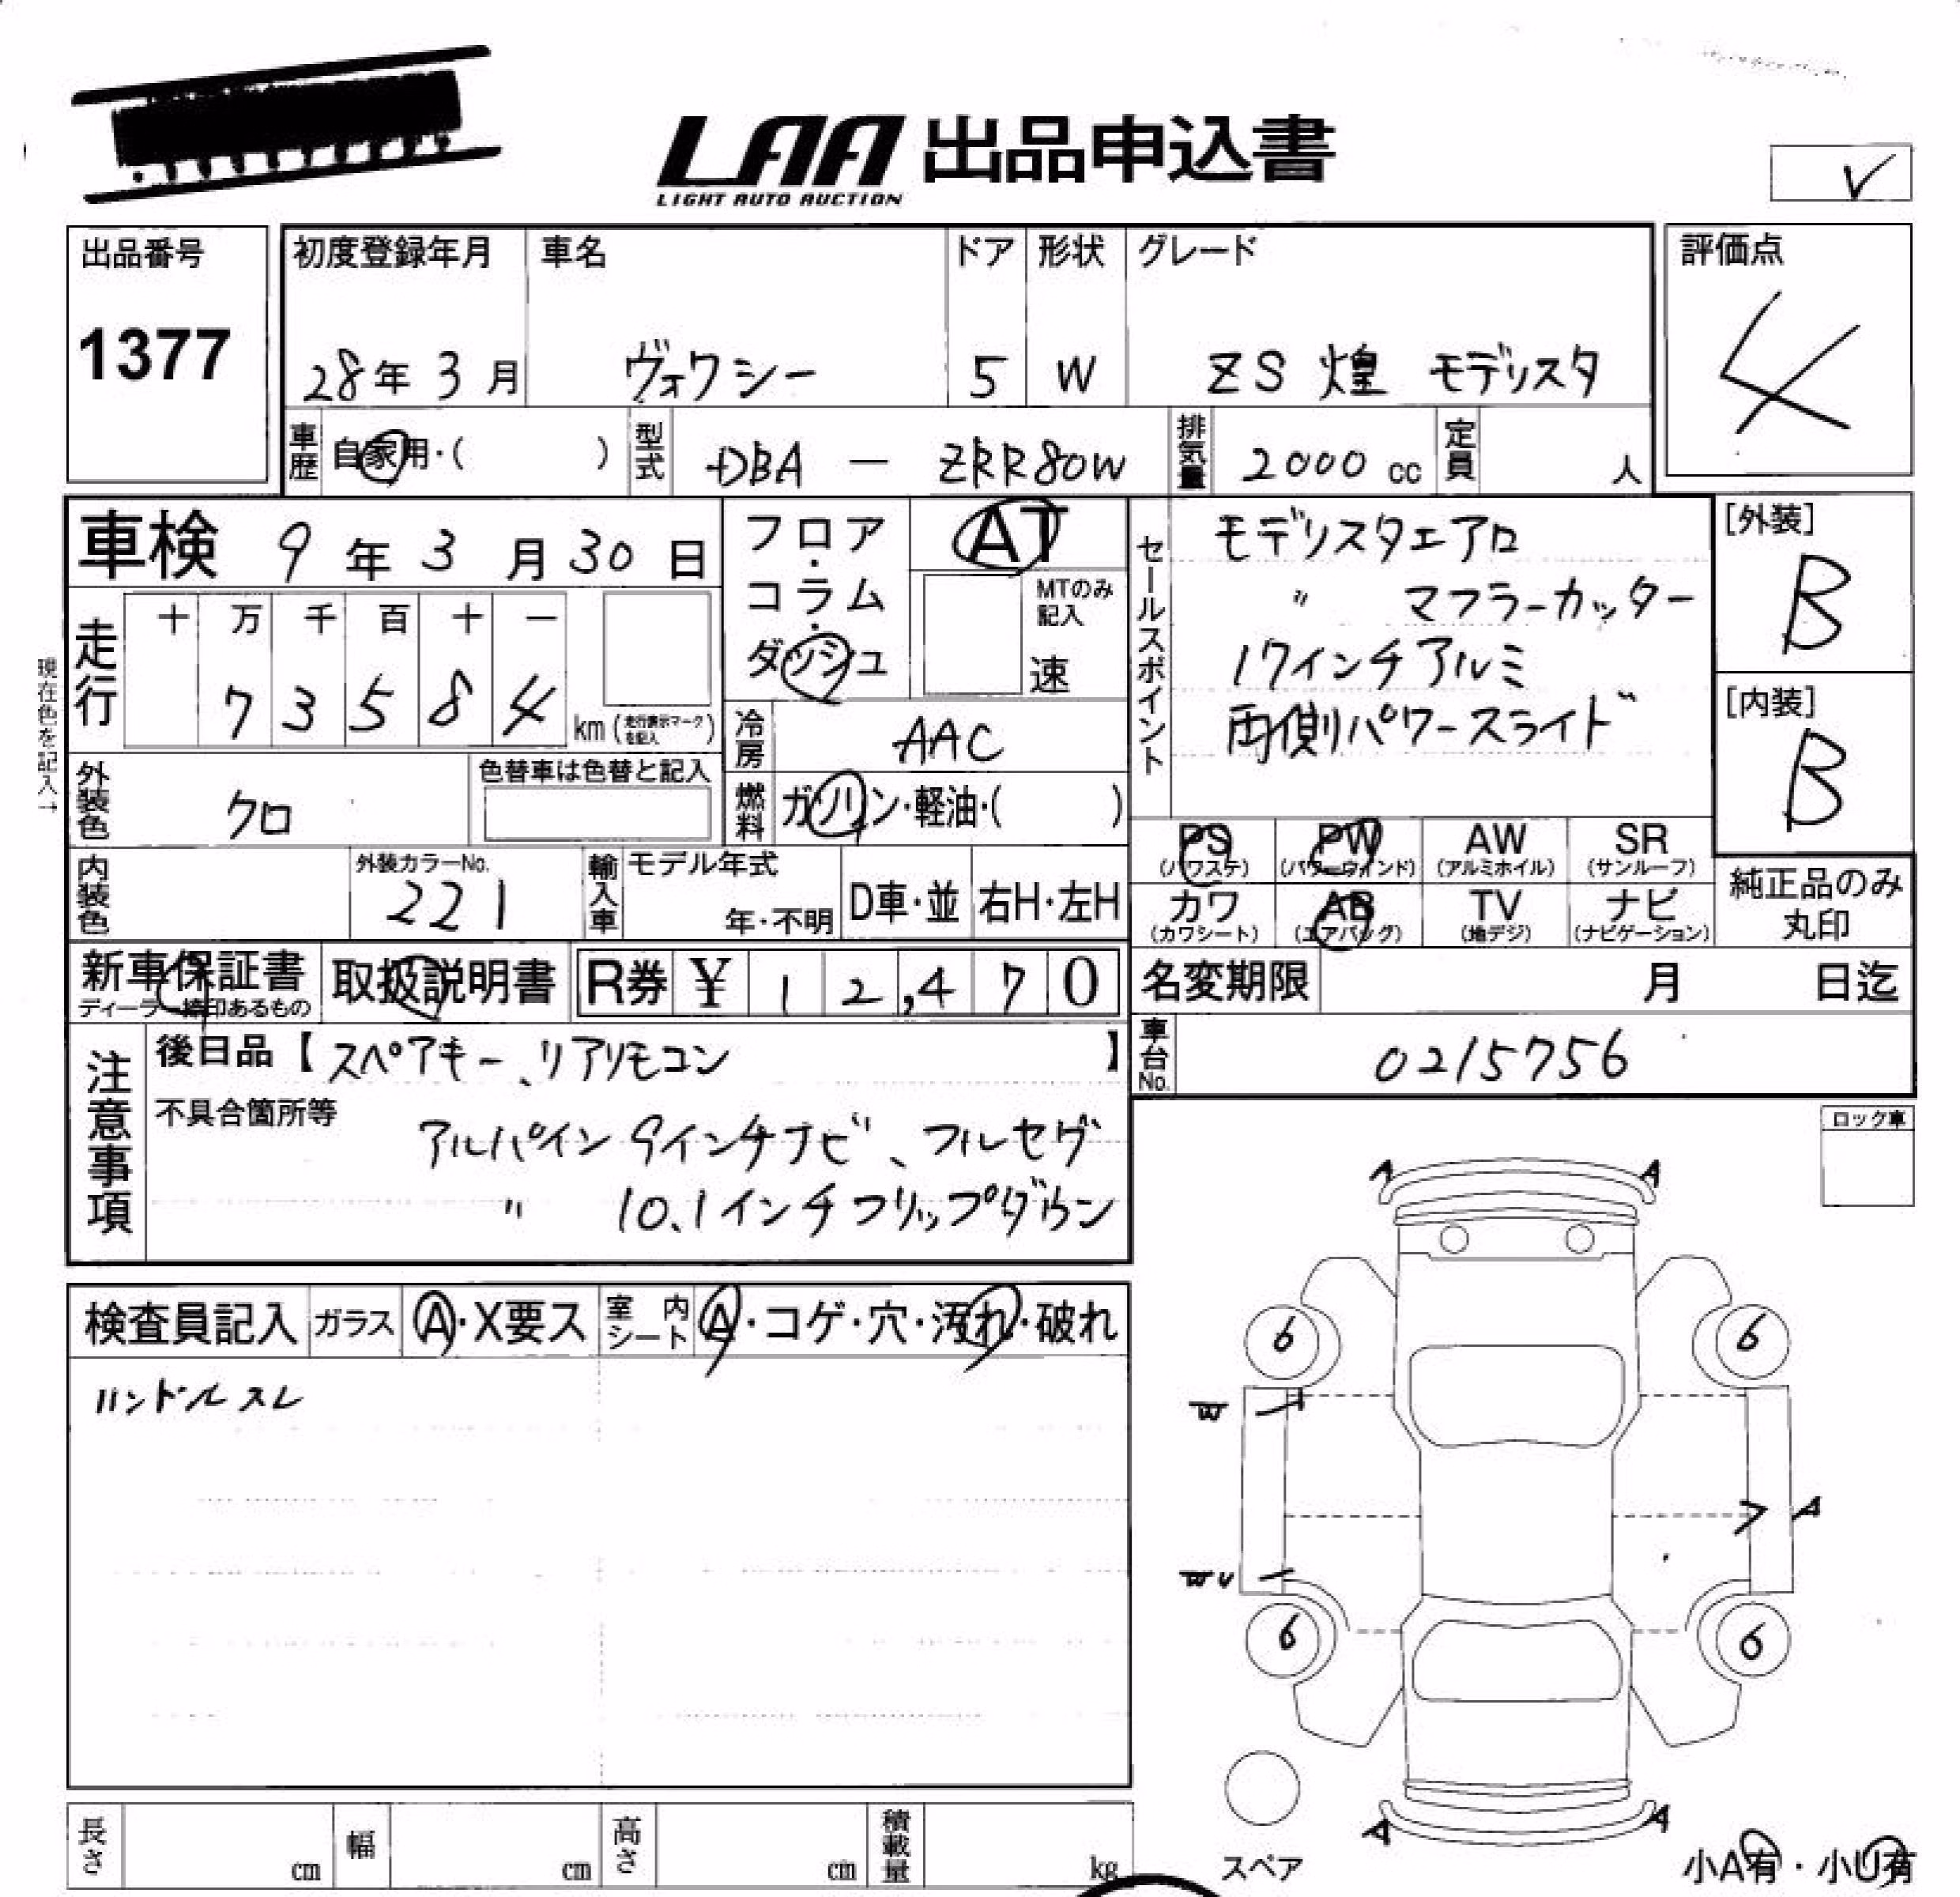 LAA 出品申込書
LIGHT AUTO AUCTION
✓
出品番号
1377
初度登録年月 車名 ドア 形状 グレード
28年 3月 ヴォクシー 5 W ZS 煌 モデリスタ
評価点
4
車歴 自家用・( ) 型式 DBA - ZRR80W 排気量 2000 cc 定員 人
車検 9年 3月 30日
フロア・コラム・ダッシュ
AT
MTのみ記入
速
セールスポイント
モデリスタエアロ
〃 マフラーカッター
17インチアルミ
両側パワースライド
[外装]
B
[内装]
B
現在色を記入→
走行
十 万 千 百 十 一
7 3 5 8 4 km (走行表示マークを記入)
冷房 AAC
燃料 ガソリン・軽油・( )
外装色 クロ
色替車は色替と記入
内装色
外装カラーNo.
221
輸入車 モデル年式
年・不明 D車・並 右H・左H
PS (パワステ) PW (パワーウィンド) AW (アルミホイル) SR (サンルーフ)
カワ (カワシート) AB (エアバッグ) TV (地デジ) ナビ (ナビゲーション)
純正品のみ丸印
新車保証書
ディーラー捺印あるもの
取扱説明書
R券 ¥ 12,470
名変期限 月 日迄
車台No. 0215756
注意事項
後日品【スペアキー、リアリモコン】
不具合箇所等
アルパイン 9インチナビ、フルセグ
〃 10.1インチフリップダウン
ロック車
検査員記入 ガラス A・X要ス 室内シート A・コゲ・穴・汚れ・破れ
ハンドルスレ
A A
6 6
W
A
WU
6 6
A A
スペア
小A有・小U有
長さ cm 幅 cm 高さ cm 積載量 kg